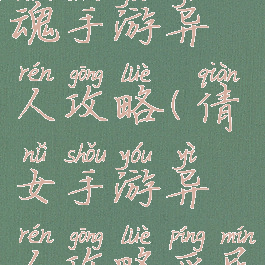 魂手游异
rén gōng lüè qiàn
人攻略(倩
nǚ shǒu yóu yì
女手游异
rén gōng lüè píng mín